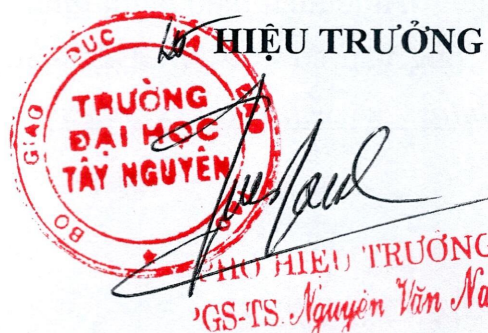 HIỆU TRƯỞNG
BỘ GIÁO DỤC
TRƯỜNG
ĐẠI HỌC
TÂY NGUYÊN
PHÓ HIỆU TRƯỞNG
PGS-TS. Nguyễn Văn Na